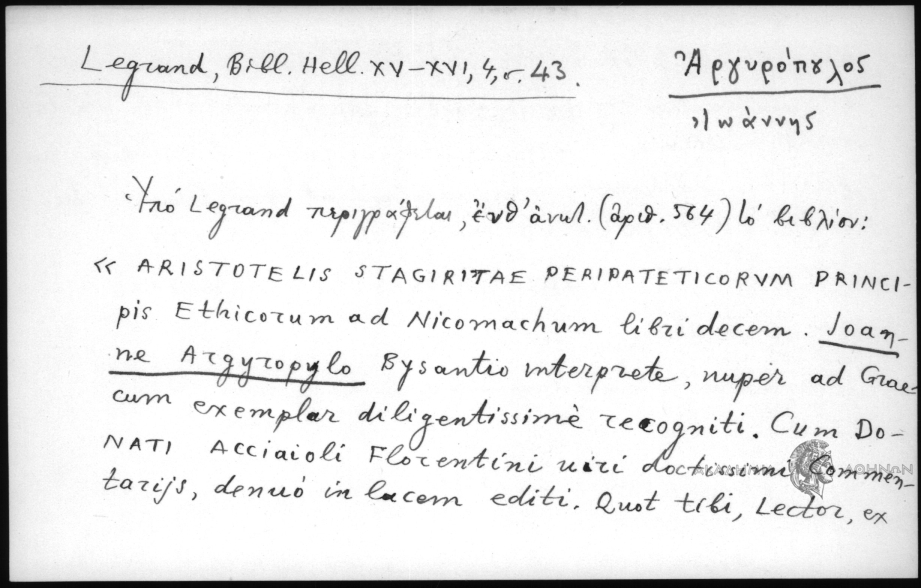 Legrand, Bibl. Hell. XV-XVI, 4, σ. 43.
Ἀργυρόπουλος
Ἰωάννης
Ὑπό Legrand περιγράφεται, ἔνθ' ἀνωτ. (ἀριθ. 564) τό βιβλίον:
« ARISTOTELIS STAGIRITAE PERIPATETICORVM PRINCI-
pis Ethicorum ad Nicomachum libri decem. Joan-
ne Argyropylo Bysantio interprete, nuper ad Grae-
cum exemplar diligentissimè recogniti. Cum Do-
NATI Acciaioli Florentini uiri doctissimi Commen-
tarijs, denuó in lucem editi. Quot tibi, Lector, ex
ΑΘΗΝΩΝ